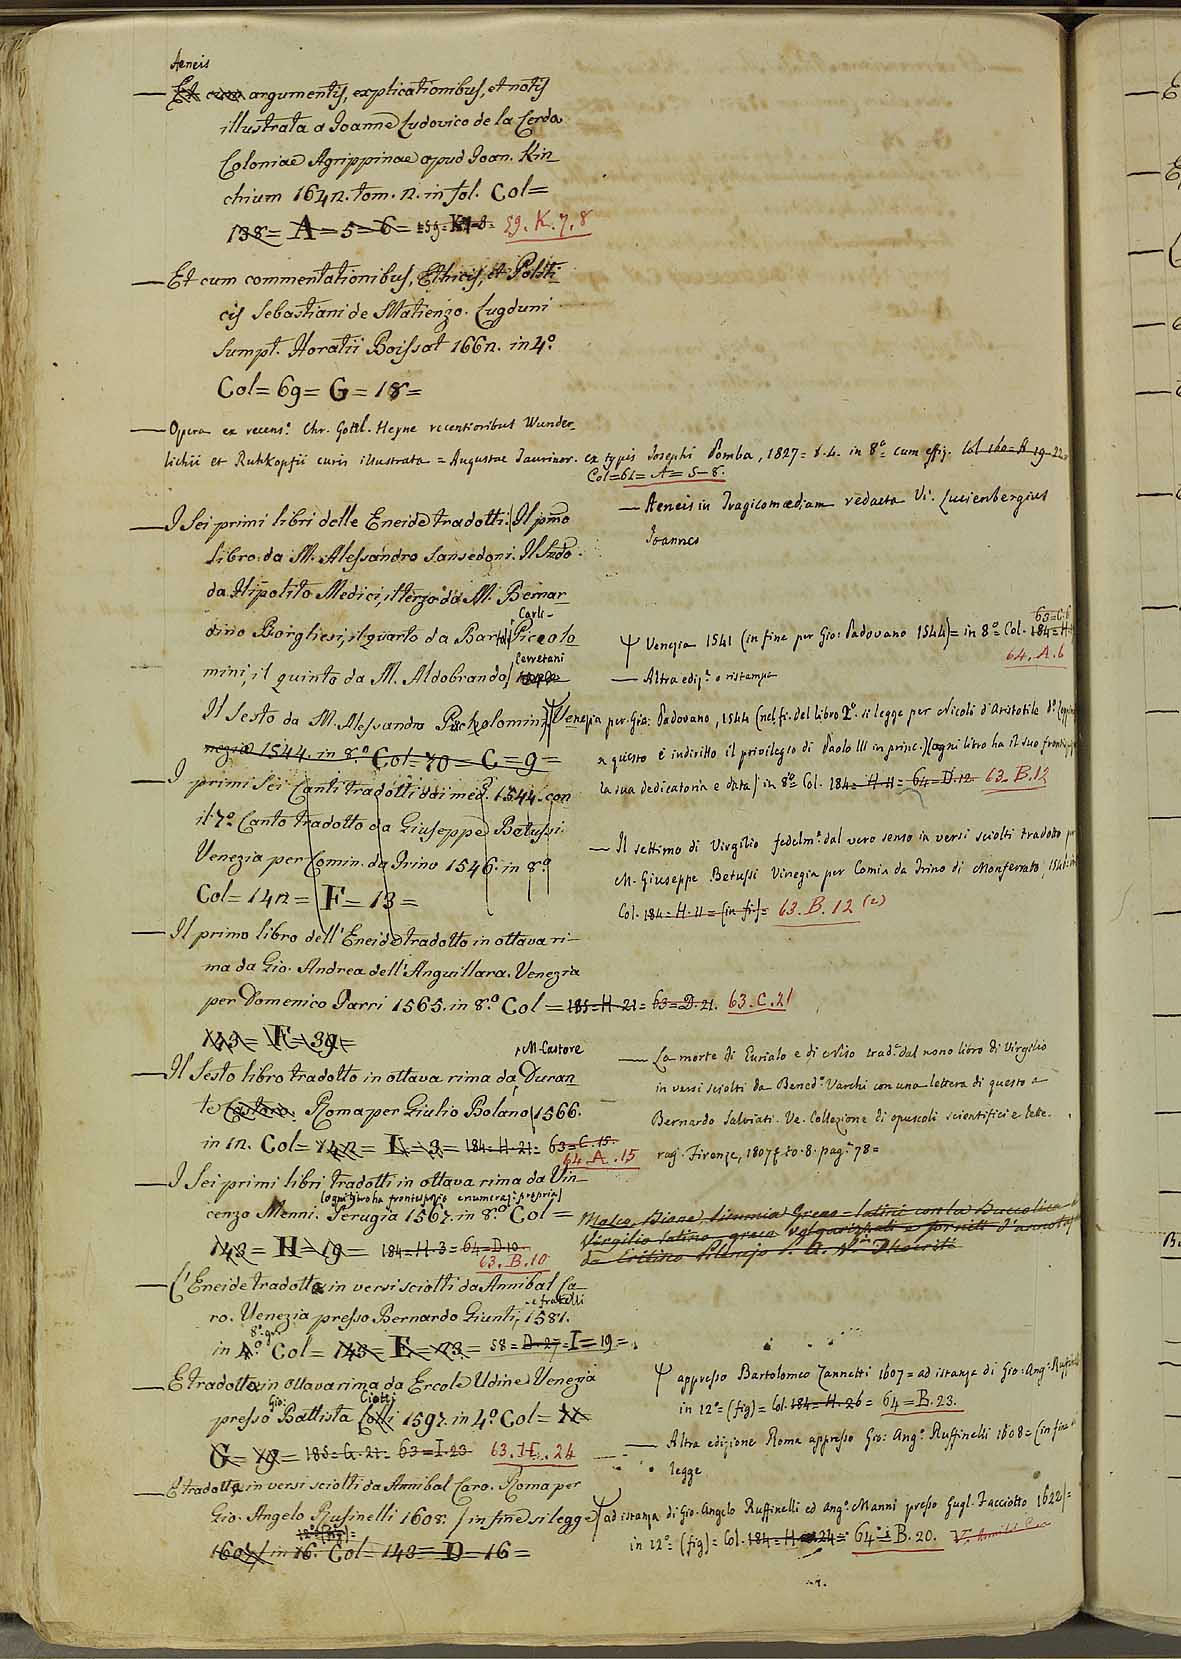 Aeneis
— Et cum argumentis, explicationibus, et notis
illustrata a Joanne Ludovico de la Cerda
Coloniae Agrippinae apud Joan. Kin
chium 1642. tom. 2. in fol. Col=
138= A=5=6= 59. K. 7. 8
— Et cum commentationibus, Ethicis, et Politi
cis Sebastiani de Matienzo. Lugduni
sumpt. Horatii Boissat 1662. in 4.º
Col= 69= G= 18=
— Opera ex recens.e Chr. Gottl. Heyne recentioribus Wunder
lichii et Ruhkopfii curis illustrata = Augustae Taurinor. ex typis Josephi Pomba, 1827= t. 4. in 8º= cum effig. Col 160= A 19-22
Col=61= A= 5-8.
— I Sei primi libri delle Eneide tradotti. Il pmo
libro da M. Alessandro Sansedoni. Il Sndo.
da Hippolito Medici, il terzo da M. Bernar
dino Borghesi, il quarto da Bart. Carli- Piccolo
mini, il quinto da M. Aldobrando Cerretani
Il Sesto da M. Alessandro Piccholomini
nezia 1544. in 8.º Col= 70= C= 9=
— I primi Sei Canti tradotti dai med. 1544. con
il 7º Canto tradotto da Giuseppe Betussi.
Venezia per Comin. da Trino 1546. in 8.º
Col= 142= F= 13=
— Il primo libro dell'Eneide tradotto in ottava ri-
ma da Gio. Andrea dell'Anguillara. Venezia
per Domenico Farri 1565. in 8.º Col= 185=H. 21= 63=D. 21. 63. C. 21
143= F= 39=
— Il Sesto libro tradotto in ottava rima da M. Castore Duran
te Castore. Roma per Giulio Bolano 1566.
in 12. Col= 142= I= 3= 184=H. 21= 63=C. 15.
64. A. 15
— I Sei primi libri tradotti in ottava rima da Vin
(ogni libro ha frontespizio e numeraz.e propria)
cenzo Menni. Perugia 1567. in 8.º Col=
143= H= 19= 184=H. 3= 64=D 10.
63. B. 10
— L'Eneide tradotta in versi sciolti da Annibal Ca
ro. Venezia presso Bernardo Giunti, e fratelli 1581.
in 4.º 8º gr. Col= 143= E= 23= 58= D. 27= I= 19=
— E tradotta in ottava rima da Ercole Udine Venezia
presso Gio: Battista Ciotti 1597. in 4.º Col= 11
G= 19= 185=G. 21= 63=I. 23 63. H. 24
— E tradotta in versi sciolti da Annibal Caro. Roma per
Gio. Angelo Rufinelli 1608. (in fine si legge
1607) in 16. 12º (fig)= Col= 143= D= 16=
— Aeneis in Tragicomoediam redacta Vi. Lucienbergius
Joannes
Ψ Venezia 1541 (in fine per Gio: Padovano 1544)= in 8º= Col. 184=H
63=C. 6
64. A. 6
— Altra ediz.e o ristampa
Ψ Venezia per Gio: Padovano, 1544 (nel fi. del libro 2º. si legge per Nicolò d'Aristotile d.o Zoppino
a questo è indiritto il privilegio di Paolo III in princ.) (ogni libro ha il suo frontisp
la sua dedicatoria e data) in 8º Col. 184= H 11= 64=D. 12. 63. B. 12
— Il settimo di Virgilio fedelm.e dal vero senso in versi sciolti tradotto
M. Giuseppe Betussi Vinegia per Comin da Trino di Monferrato, 1546
Col. 184=H. 11= (in fi.)= 63. B. 12 (2)
— La morte di Eurialo e di Niso trad.a dal nono libro di Virgilio
in versi sciolti da Bened.o Varchi con una lettera di questo a
Bernardo Salviati. Ve. Collezione di opuscoli scientifici e lette-
raj. Firenze, 1807 to. 8. pag.e 78=
Mosco, Bione, Simmia Greco-latini con la Buccolica
Virgilio latino-greca volgarizzati e forniti d'annotaz
da Eritisco Pilenejo P. A. V.e Theocriti
Ψ appresso Bartolomeo Zannetti 1607= ad istanza di Gio: Ang.o Ruffinelli
in 12º= (fig)= Col. 184=H. 26= 64=B. 23.
— Altra edizione Roma appresso Gio: Ang.o Ruffinelli 1608= (in fine
legge
Ψ ad istanza di Gio. Angelo Ruffinelli ed Ang.o Manni presso Gugl. Facciotto 1622)=
in 12º= (fig)= Col. 184=H 24= 64=B. 20.